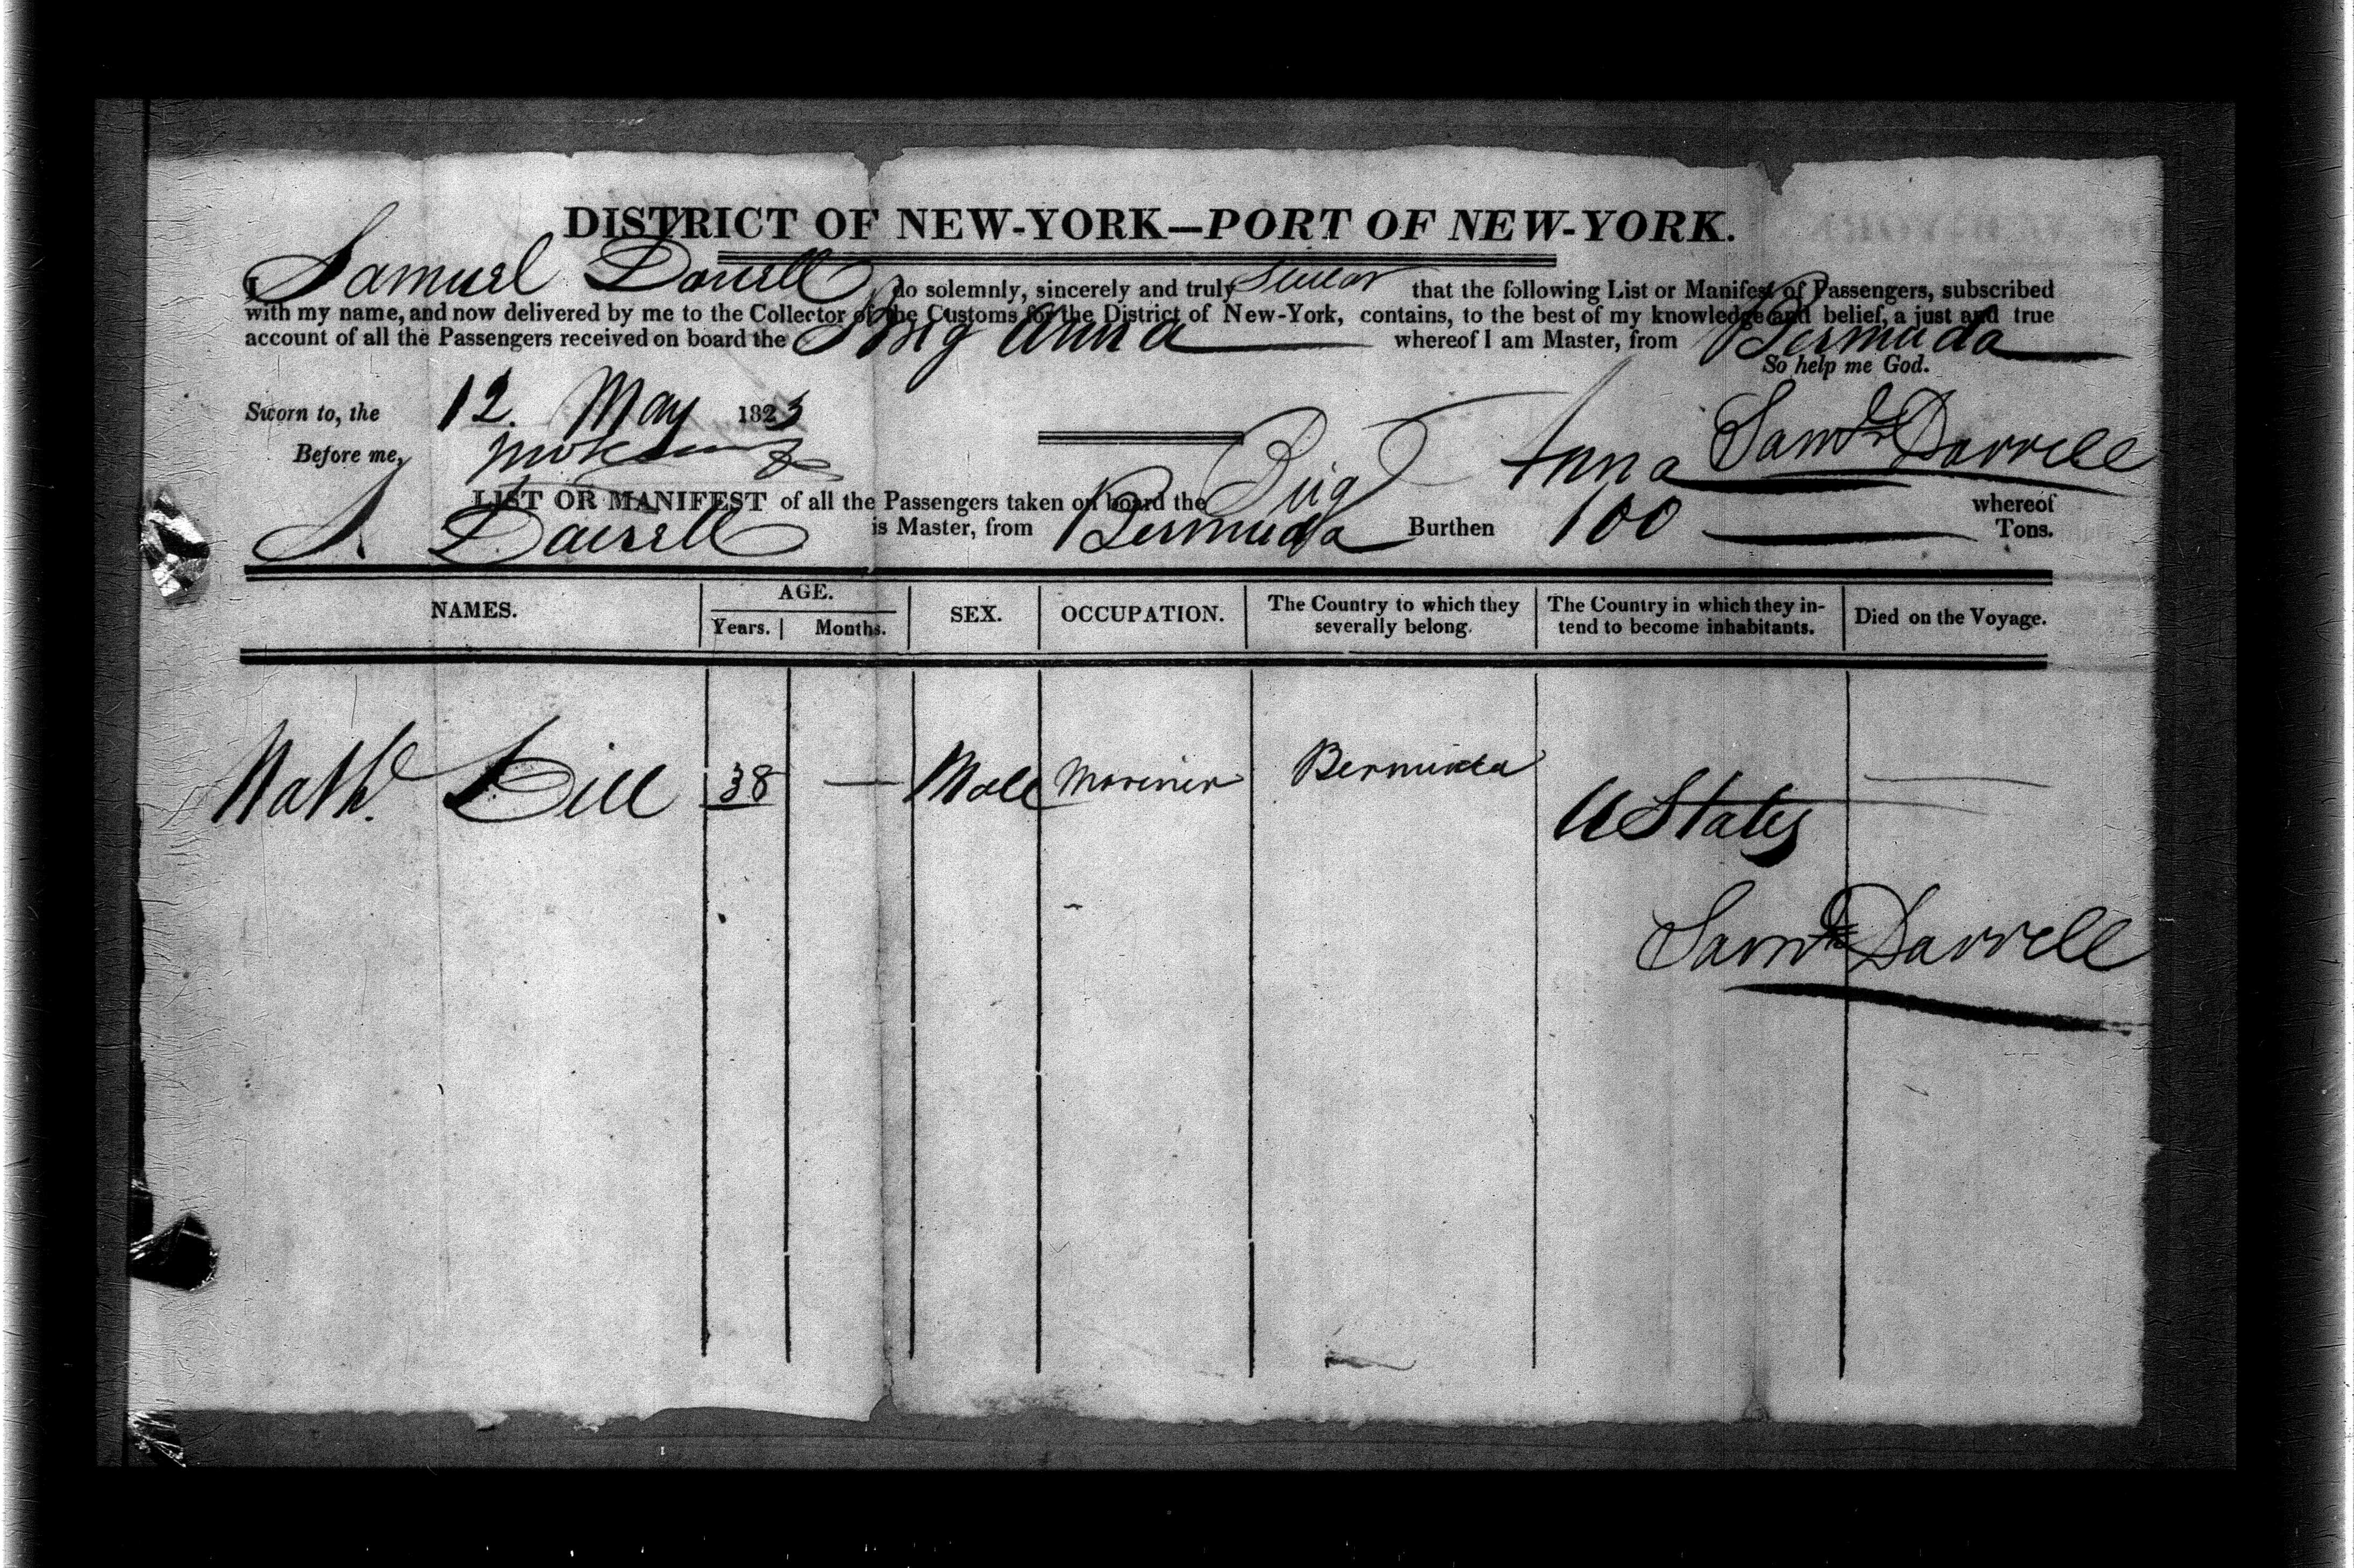 DISTRICT OF NEW-YORK—PORT OF NEW-YORK.
I Samuel Darrell do solemnly, sincerely and truly Swear that the following List or Manifest of Passengers, subscribed
with my name, and now delivered by me to the Collector of the Customs for the District of New-York, contains, to the best of my knowledge and belief, a just and true
account of all the Passengers received on board the Brig Anna whereof I am Master, from Bermuda
So help me God.
Sworn to, the 12 May 1823
Saml Darrell
Before me,
LIST OR MANIFEST of all the Passengers taken on board the Brig Anna whereof
S Darrell is Master, from Bermuda Burthen 100 Tons.
NAMES. AGE. SEX. OCCUPATION. The Country to which they severally belong. The Country in which they in-tend to become inhabitants. Died on the Voyage.
Years. Months.
Nathl. Dill 38 — Male Mariner Bermuda U States —
Saml Darrell